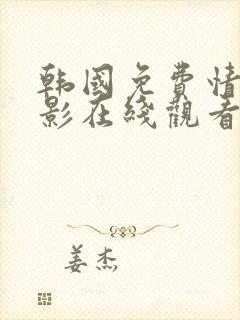 韩国免费情
影在线觀看
姜杰